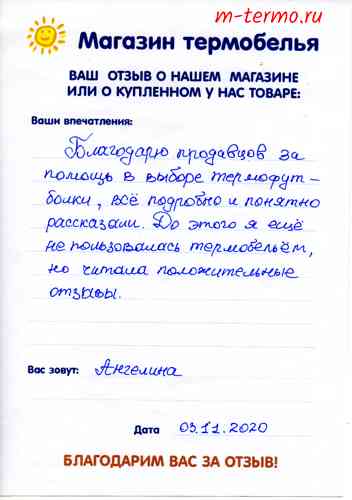 m-termo.ru
Магазин термобелья
ВАШ ОТЗЫВ О НАШЕМ МАГАЗИНЕ
ИЛИ О КУПЛЕННОМ У НАС ТОВАРЕ:
Ваши впечатления:
Благодарю продавцов за
помощь в выборе термофут-
болки, всё подробно и понятно
рассказали. До этого я ещё
не пользовалась термобельём,
но читала положительные
отзывы.
Вас зовут: Ангелина
Дата 03.11.2020
БЛАГОДАРИМ ВАС ЗА ОТЗЫВ!